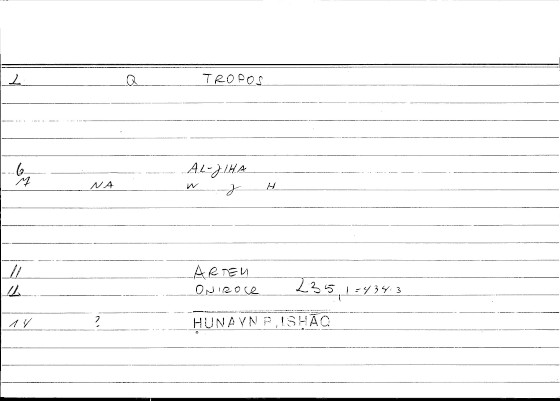 1 Q TROPOS
6 AL-JIHA
7 NA W J H
11 ARTEM
12 ONIROCR 235,1=434.3
14 ? ḤUNAYN B. ISḤĀQ